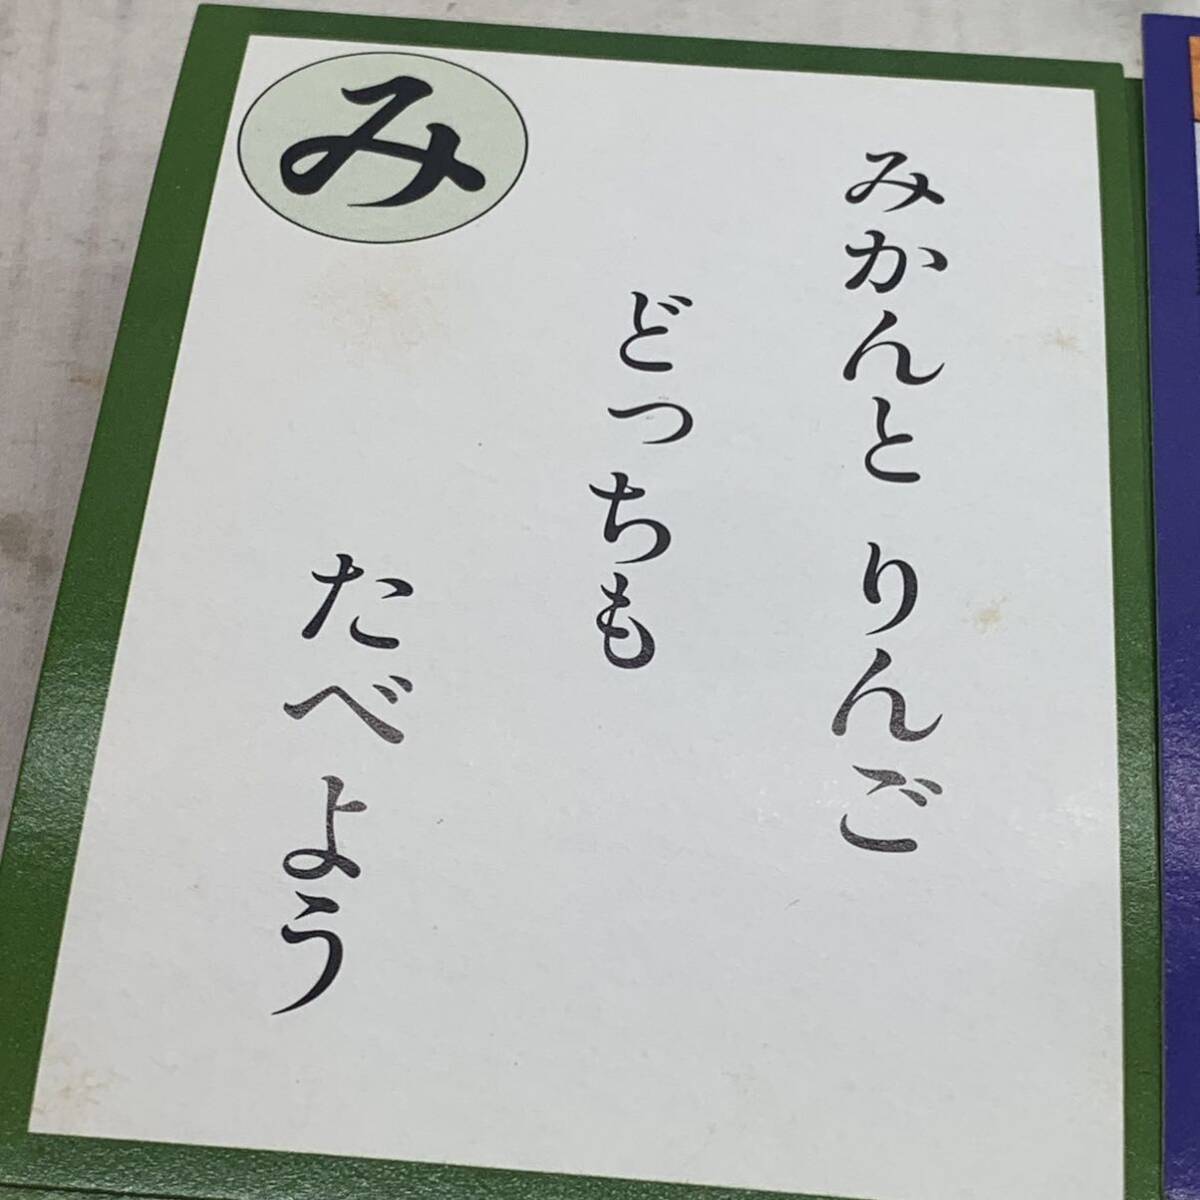 み
みかんと りんご
どっちも
たべよう